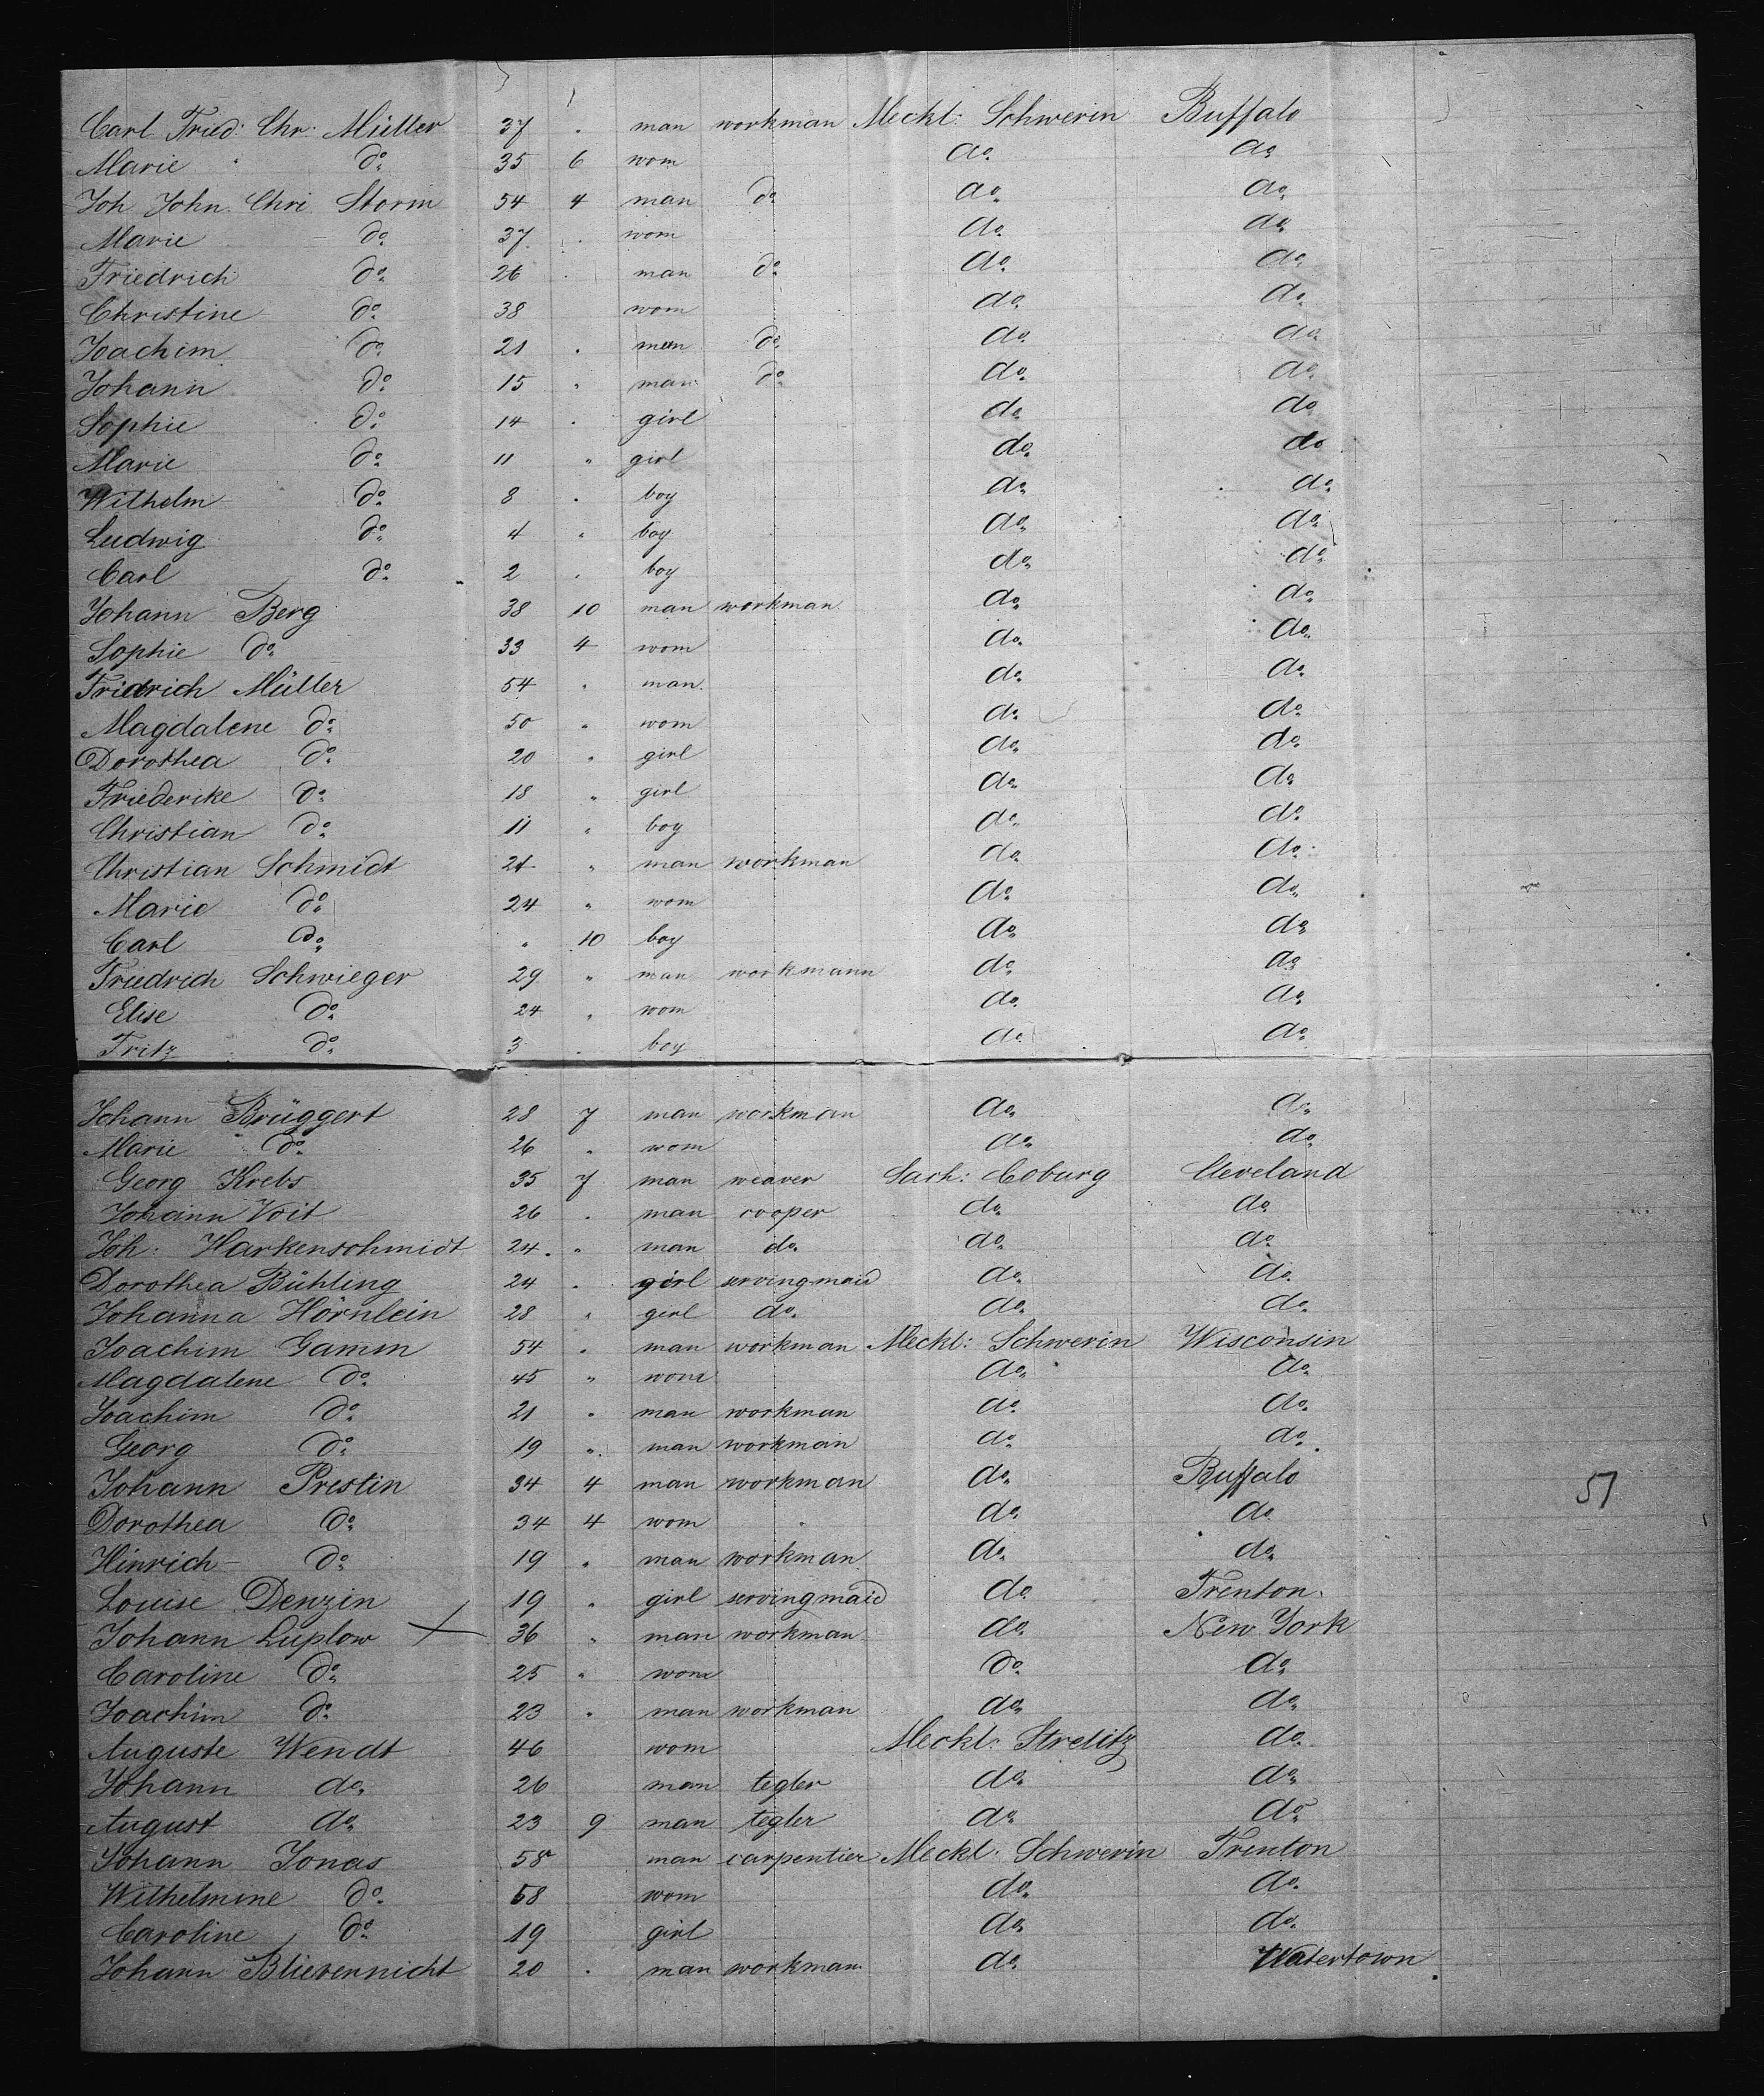 Carl Fried: Chr: Müller 37 . man workman Meckl: Schwerin Buffalo
Marie " do 35 6 wom do do
Joh John. Chri Storm 54 4 man do do do
Marie do 37 . wom do do
Friedrich do 26 . man do do do
Christine do 38 wom do do
Joachim do 21 . man do do do
Johann do 15 " man do do do
Sophie do 14 . girl do do
Marie do 11 " girl do do
Wilhelm do 8 . boy do do
Ludwig do 4 " boy do do
Carl do 2 . boy do do
Johann Berg 38 10 man workman do do
Sophie do 33 4 wom do do
Fridrich Müller 54 " man. do do
Magdalene do 50 " wom do do
Dorothea do 20 " girl do do
Friederike do 18 " girl do do
Christian do 11 " boy do do
Christian Schmidt 21 " man workman do do
Marie do 24 " wom do do
Carl do " 10 boy do do
Friedrich Schwieger 29 " man workmann do do
Elise do 24 " wom do do
Fritz do 3 . boy do do
Johann Brüggert 28 7 man workman do do
Marie " do 26 " wom do do
Georg Krebs 35 7 man weaver Sach: Coburg Cleveland
Johann Voit 26 . man cooper do do
Joh: Harkenschmidt 24. " man do do do
Dorothea Bühling 24 . girl servingmaid do do
Johanna Hörnlein 28 " girl do do do
Joachim Gamm 54 . man workman Meckl: Schwerin Wisconsin
Magdalene do 45 " wom do do
Joachim do 21 " man workman do do
Georg do 19 " man workman do do
Johann Prestin 34 4 man workman do Buffalo
51
Dorothea do 34 4 wom do do
Hinrich do 19 " man workman do do
Louise Denzin 19 " girl servingmaid do Trenton
Johann Lüplow X 36 " man workman do New York
Caroline do 25 " wom do do
Joachim do 23 " man workman do do
Auguste Wendt 46 wom Meckl: Strelitz do
Johann do 26 man tegler do do
August do 23 9 man tegler do do
Johann Jonas 58 man carpentier Meckl: Schwerin Trenton
Wilhelmine do 58 wom do do
Caroline do 19 girl do do
Johann Blievernicht 20 . man workman do Watertown.